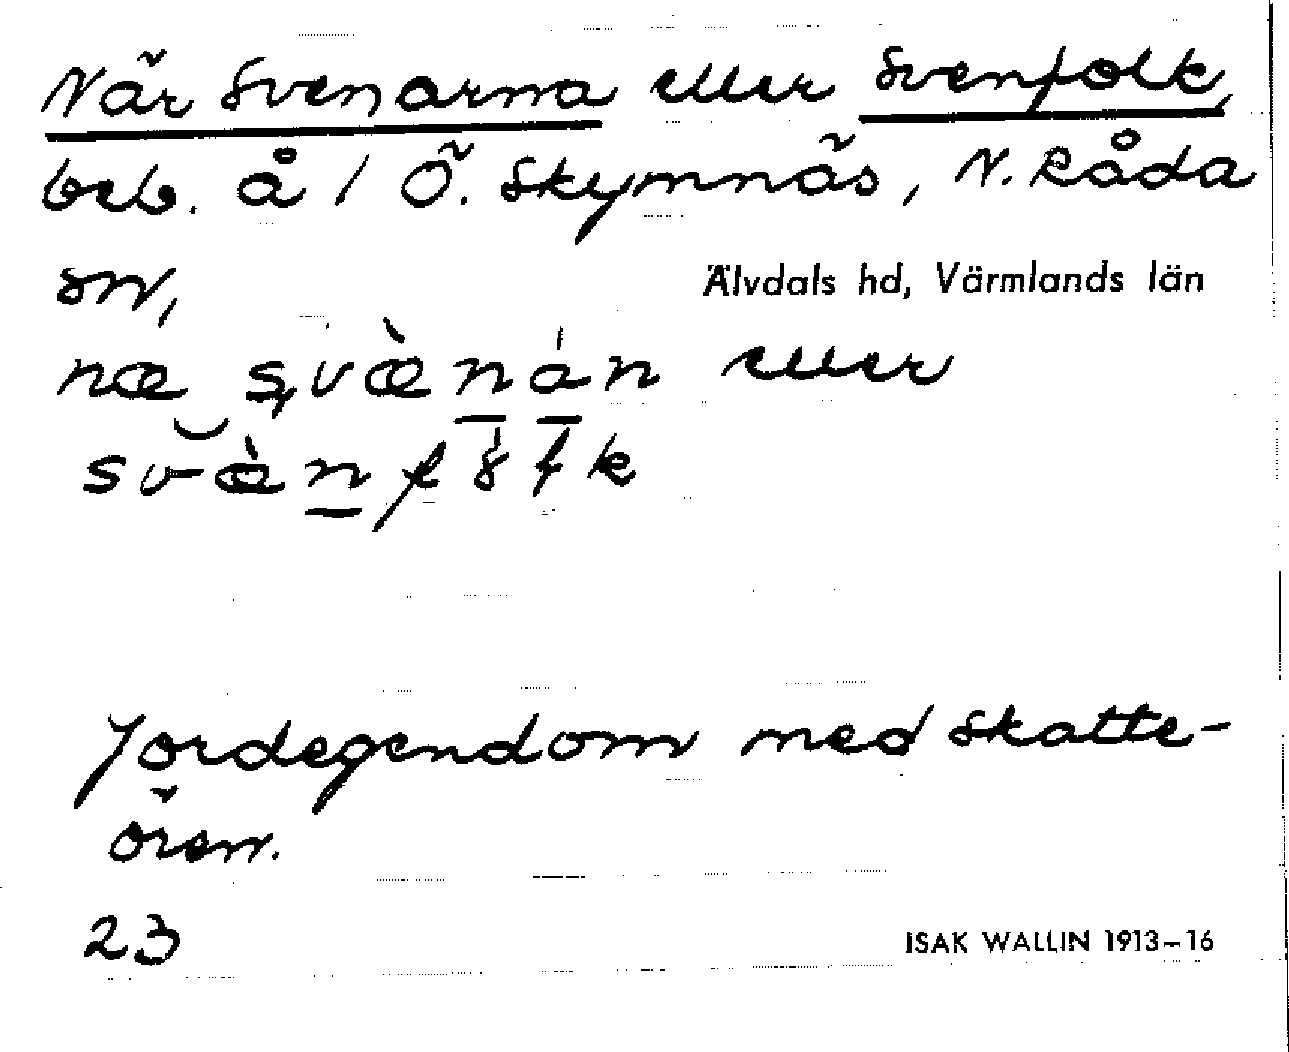 När Svenarna eller Svenfolk,
beb. å 1 Ö. Skymnäs, N. Råda
sn,
Älvdals hd, Värmlands län
næ svæ̀nán eller
svæ̀nf
Jordegendom med skatte-
ören.
23
ISAK WALLIN 1913–16